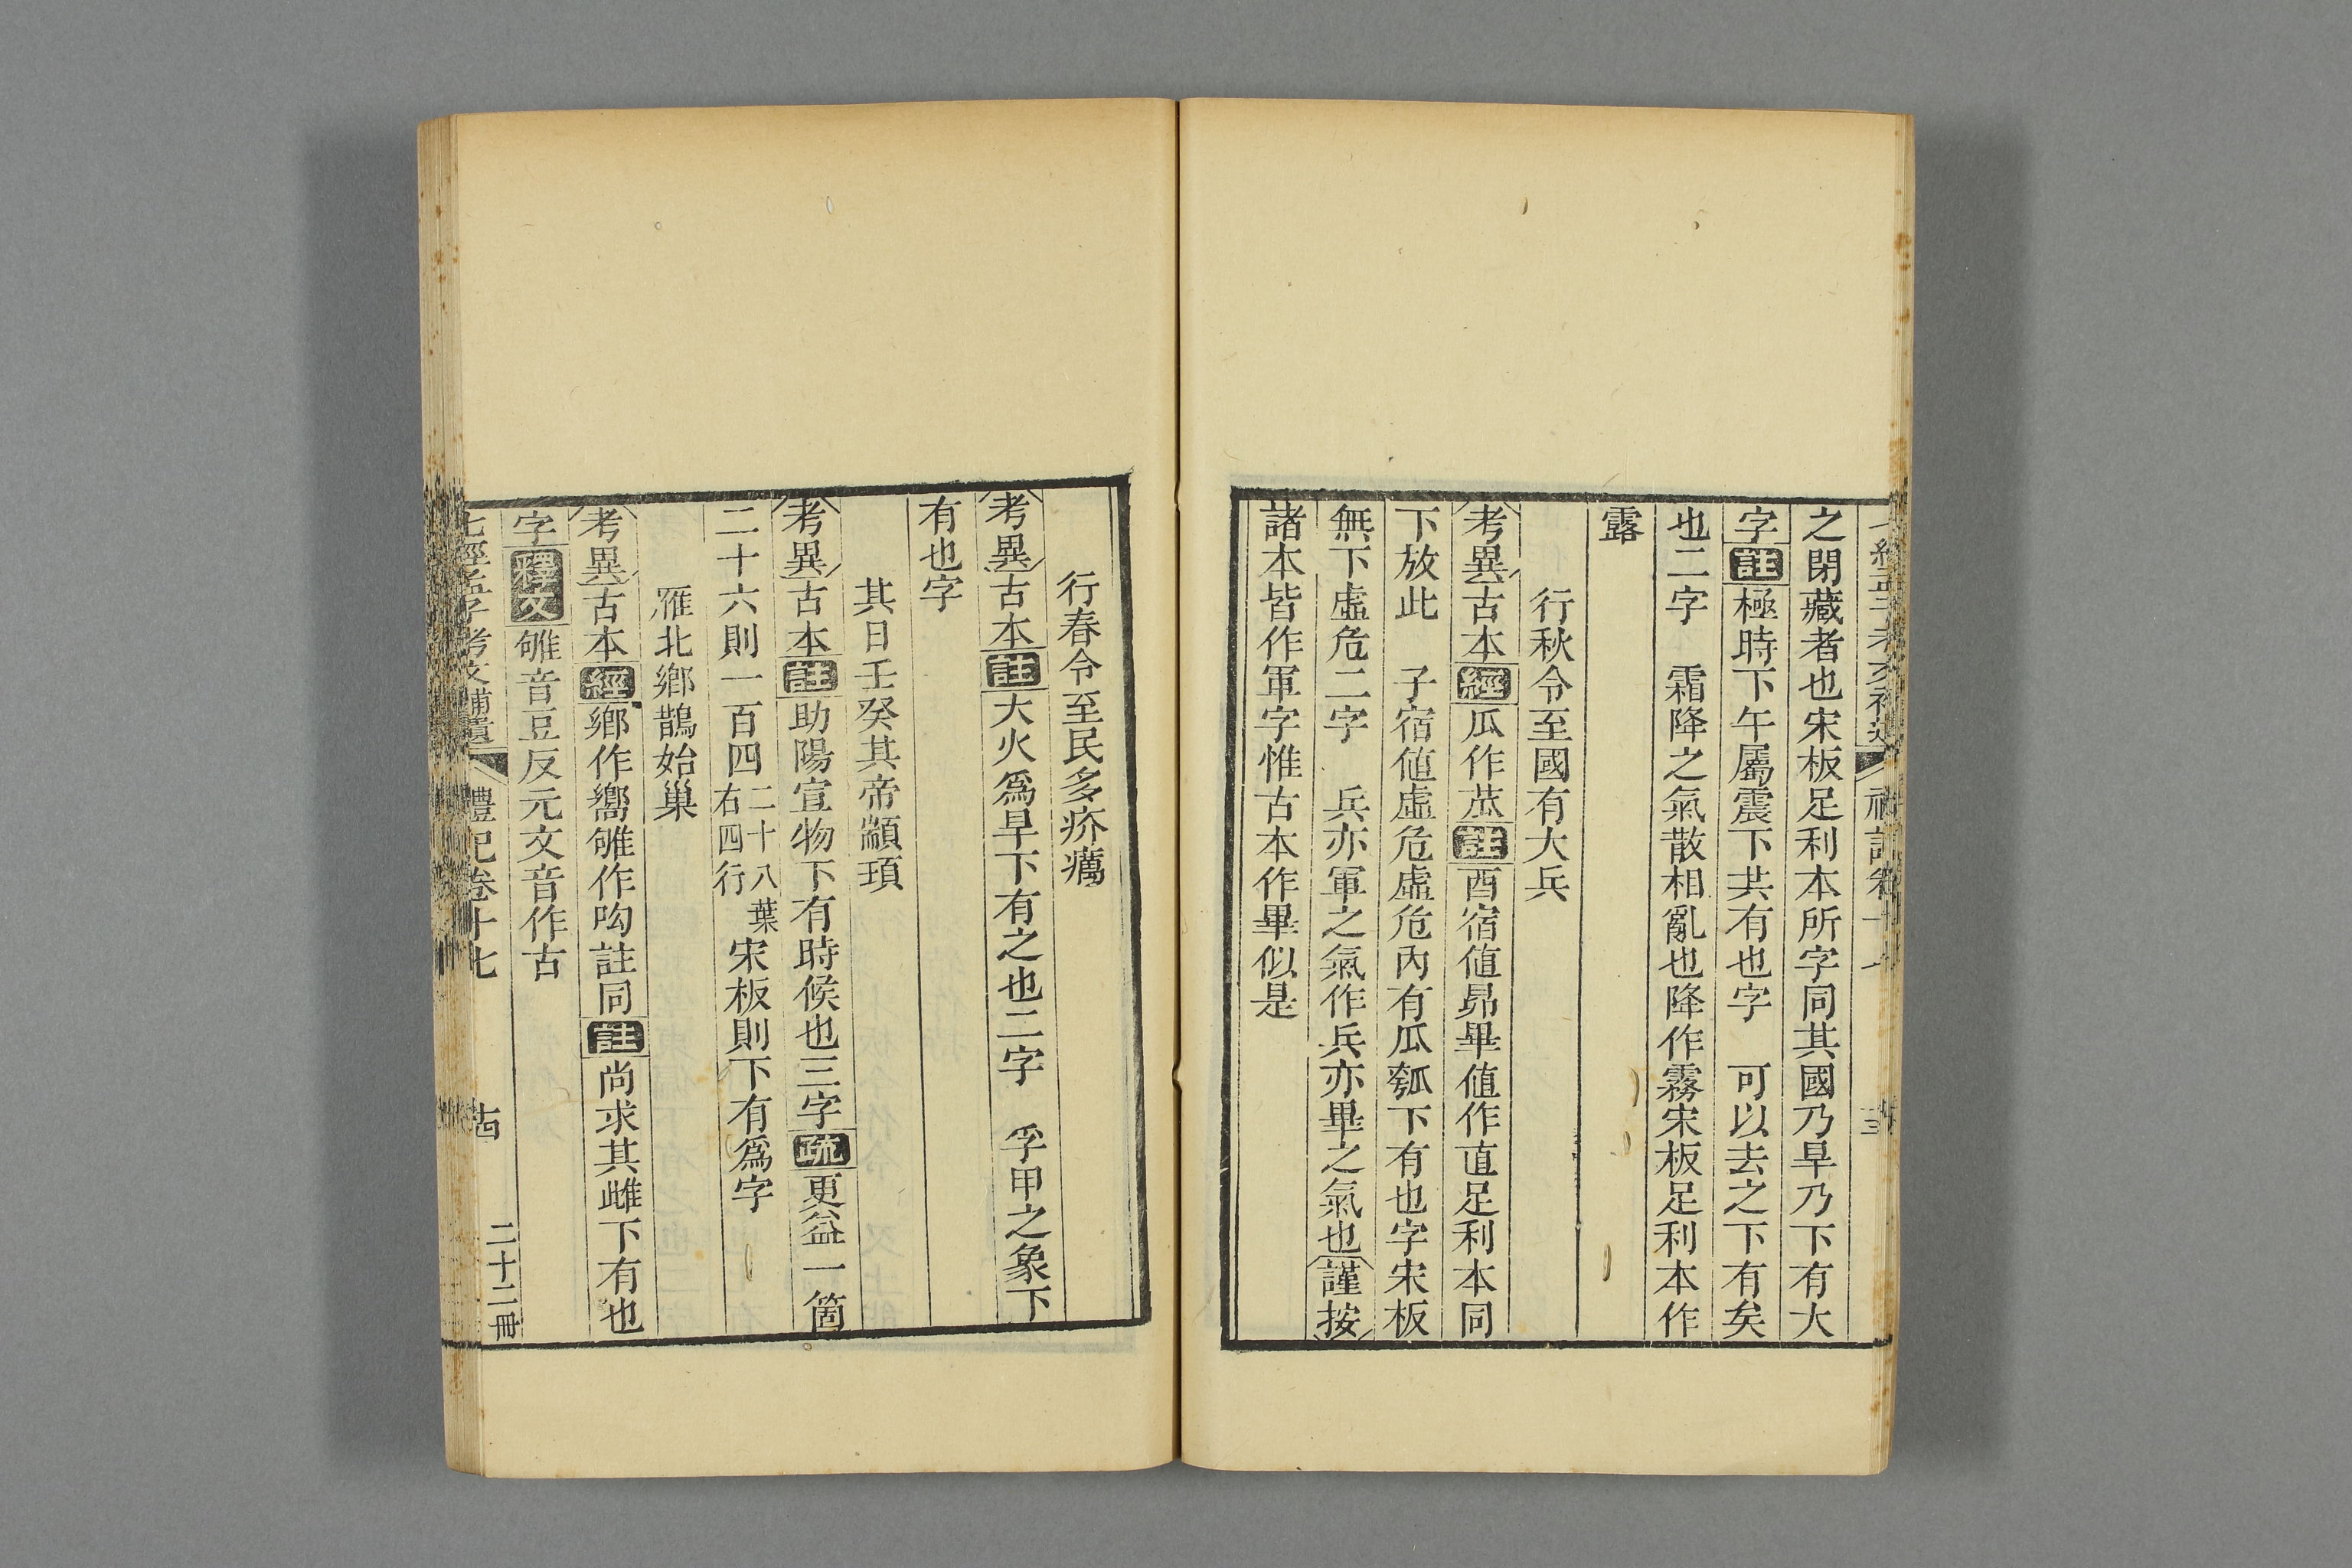 之閉藏者也宋板足利本所字同其國乃旱乃下有大
字註極時下午屬震下共有也字　可以去之下有矣
也二字　霜降之氣散相亂也降作霧宋板足利本作
露
行秋令至國有大兵
考異古本經瓜作苽註酉宿値昴畢値作直足利本同
下放此　子宿値虛危虛危內有瓜瓠下有也字宋板
無下虛危二字　兵亦軍之氣作兵亦畢之氣也謹按
諸本皆作軍字惟古本作畢似是
行春令至民多疥癘
考異古本註大火爲旱下有之也二字　孚甲之象下
有也字
其日壬癸其帝顓頊
考異古本註助陽宣物下有時候也三字疏更益一箇
二十六則一百四二十八葉右四行宋板則下有爲字
雁北鄉鵲始巢
考異古本經鄉作嚮雊作呴註同註尚求其雌下有也
字釋文雊音豆反元文音作古
七經孟子考文補遺　禮記卷十七　古　二十二冊